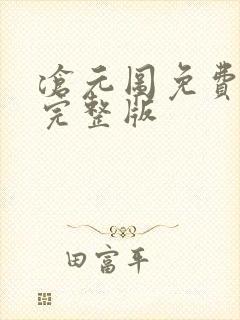 滄元圖免費
完整版
田富平